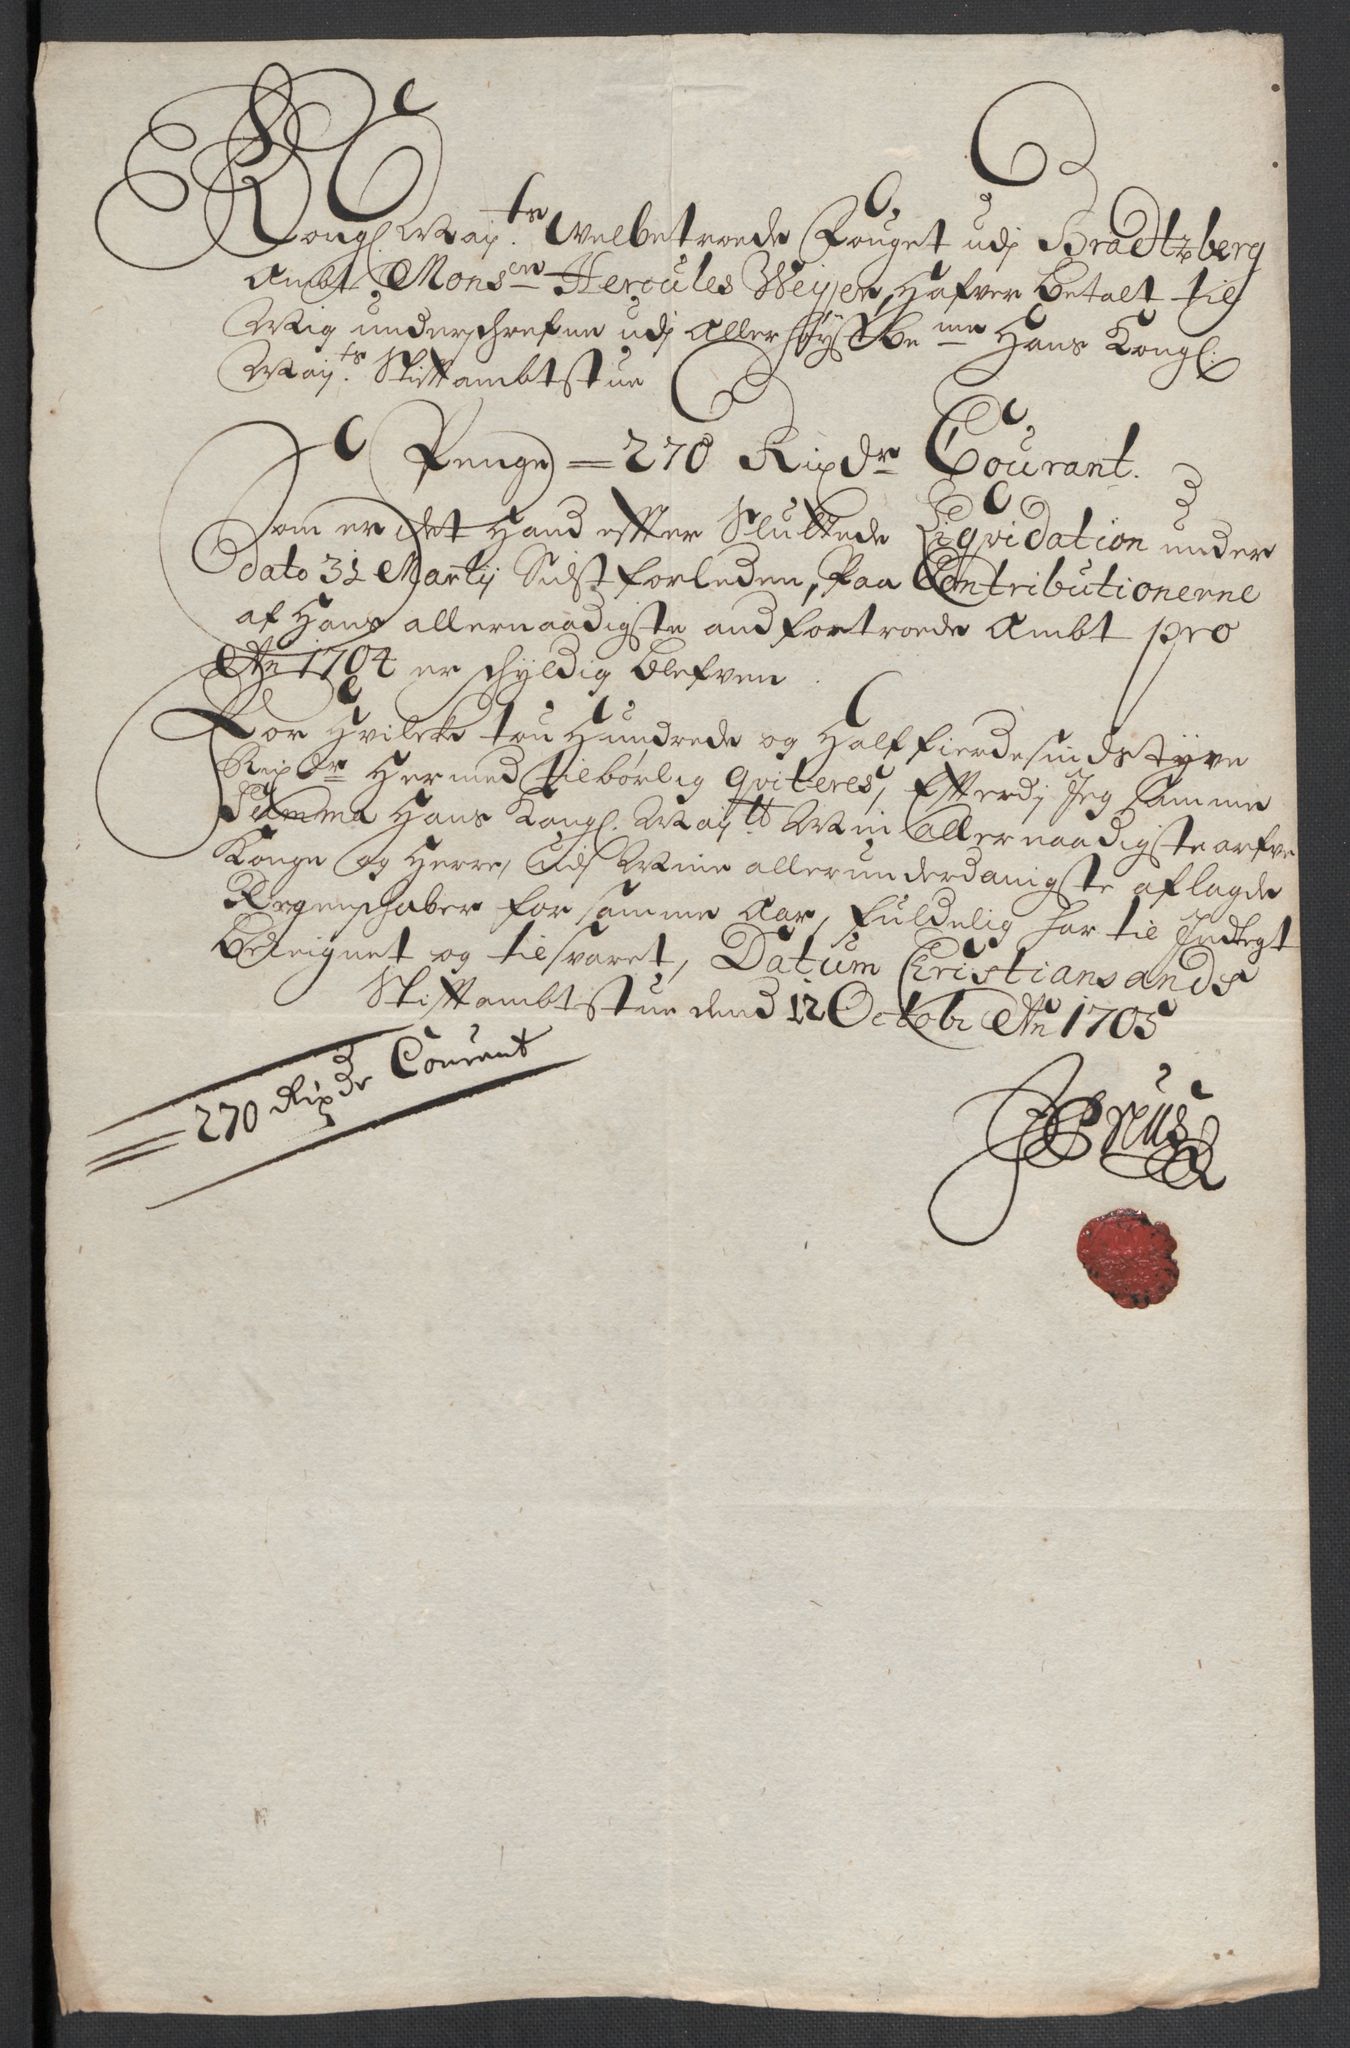 Kongl. Maij.ts Welbetroede Fouget udj Bradtzberg
Ambt, Mons.en Hercules Weyer, Hafver betalt til
Mig underschrefne udj Allerhøystbe.me Hans Kongl:
Maij.ts Stiftambtstue
Penge = 270 Rixdr Courant.
Som er det Hand efter Sluttede Liqvidation under
dato 31 Martij Sidstforleden, Paa Contributionerne
af Hans allernaadigste andfortroede Ambt pro
Ao 1704 er schyldig blefven
For Hvilcke tou Hundrede og Halffierdesindstyve
Rixdr Hermed tilbørlig qviteres, Efterdj Jeg samme
Summa Hans Kongl. Maij.tt Min Allernaadigste arfve
Konge og Herre, udj Mine allerunderdanigste aflagde
Regenschaber for samme Aar, fuldelig har til Indtegt
bereignet og tilsvaret, Datum Christiansands
Stiftambtstue dend 12 Octobr Ao 1705
270 Rixdr Courant